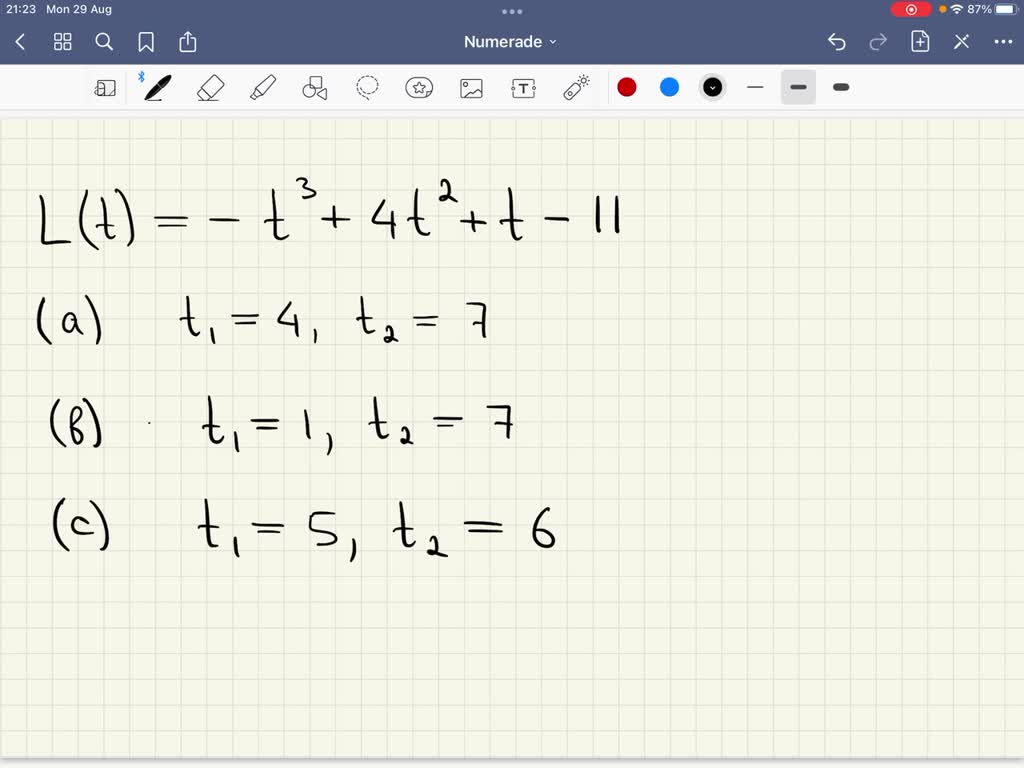 21:23 Mon 29 Aug 87%
Numerade
T
L(t) = - t³ + 4t² + t - 11
(a) t₁ = 4, t₂ = 7
(b) t₁ = 1, t₂ = 7
(c) t₁ = 5, t₂ = 6